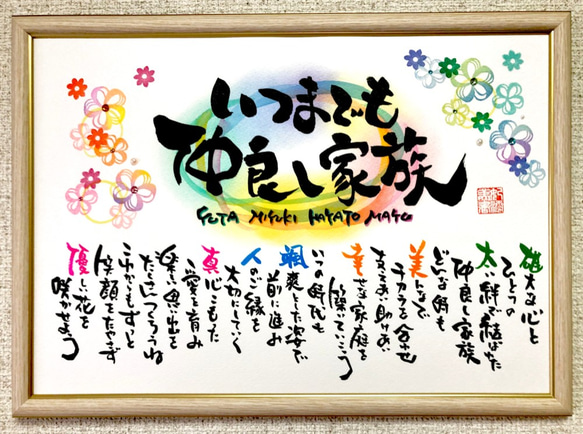 いつまでも
仲良し家族
YUTA MIYUKI HAYATO MAYU
雄大な心と
ひとつの
太い絆で結ばれた
仲良し家族
どんな時も
美んなで
チカラを合せ
ささえあい助けあい
幸せな家庭を
築いていこう
いつの時代も
颯爽とした姿で
前に進み
人のご縁を
大切にしていく
真心こもった
愛を育み
楽しい思い出を
たくさんつくろうね
これからもずっと
笑顔をたやさず
優しい花を
咲かせよう